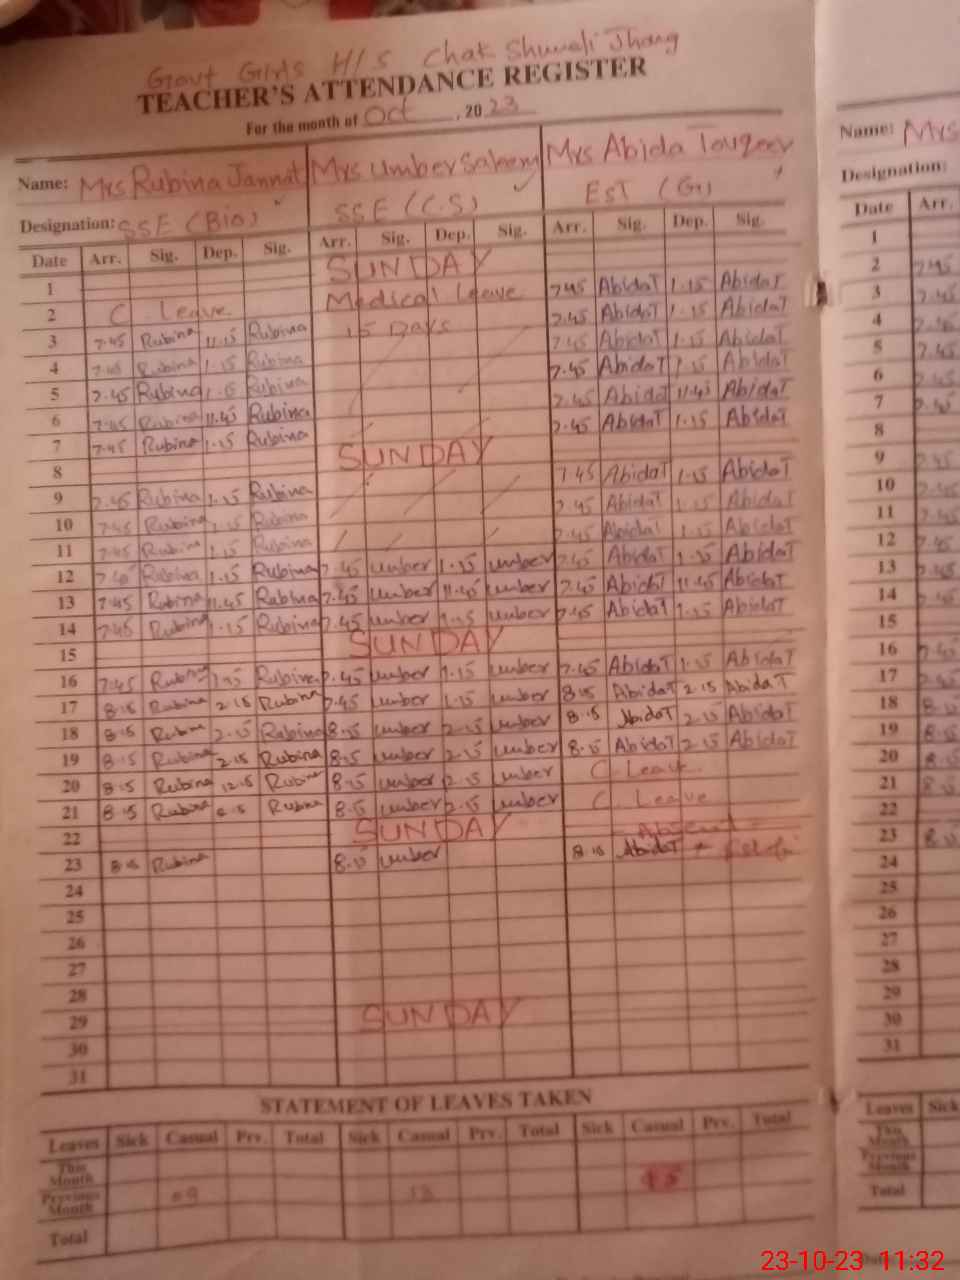 Govt Girls H/S Chak Shumali Jhang
TEACHER'S ATTENDANCE REGISTER
For the month of Oct, 2023
Name: Mrs Rubina Jannat Mrs Umber Saleem Mrs Abida Touqeer
Designation: SSE (Bio) SSE (C.S) EST (G)
Date Arr. Sig. Dep. Sig. Arr. Sig. Dep. Sig. Arr. Sig. Dep. Sig.
1 SUNDAY
2 C Leave Medical Leave 7.45 AbidaT 1.15 AbidaT
3 7.45 Rubina 1.15 Rubina 15 Days 7.45 AbidaT 1.15 AbidaT
4 7.45 Rubina 1.15 Rubina 7.45 AbidaT 1.15 AbidaT
5 7.45 Rubina 1.15 Rubina 7.45 AbidaT 1.15 AbidaT
6 7.45 Rubina 11.45 Rubina 7.45 AbidaT 11.45 AbidaT
7 7.45 Rubina 1.15 Rubina 7.45 AbidaT 1.15 AbidaT
8 SUNDAY
9 7.45 Rubina 1.15 Rubina 7.45 AbidaT 1.15 AbidaT
10 7.45 Rubina 1.15 Rubina 7.45 AbidaT 1.15 AbidaT
11 7.45 Rubina 1.15 Rubina 7.45 AbidaT 1.15 AbidaT
12 7.45 Rubina 1.15 Rubina 7.45 umber 1.15 umber 7.45 AbidaT 1.15 AbidaT
13 7.45 Rubina 11.45 Rubina 7.45 umber 11.45 umber 7.45 AbidaT 11.45 AbidaT
14 7.45 Rubina 1.15 Rubina 7.45 umber 1.15 umber 7.45 AbidaT 1.15 AbidaT
15 SUNDAY
16 7.45 Rubina 1.15 Rubina 7.45 umber 1.15 umber 7.45 AbidaT 1.15 AbidaT
17 8.15 Rubina 2.15 Rubina 7.45 umber 1.15 umber 8.15 AbidaT 2.15 AbidaT
18 8.15 Rubina 2.15 Rubina 8.15 umber 2.15 umber 8.15 AbidaT 2.15 AbidaT
19 8.15 Rubina 2.15 Rubina 8.15 umber 2.15 umber 8.15 AbidaT 2.15 AbidaT
20 8.15 Rubina 12.15 Rubina 8.15 umber 2.15 umber C. Leave
21 8.15 Rubina Rubina 8.15 umber 2.15 umber C. Leave
22 SUNDAY Absent
23 8.15 Rubina 8.15 umber 8.15 AbidaT
24
25
26
27
28
29 SUNDAY
30
31
STATEMENT OF LEAVES TAKEN
Leaves Sick Casual Prv. Total Sick Casual Prv. Total Sick Casual Prv. Total
This Month
Previous Month 09 13
Total
Name: Mrs
Designation:
Date Arr.
1
2 7.45
3 7.45
4 7.45
5 7.45
6 7.45
7 7.45
8
9 7.45
10 7.45
11 7.45
12 7.45
13 7.45
14 7.45
15
16 7.45
17 7.45
18 8.15
19 8.15
20 8.15
21 8.15
22
23 8.15
24
25
26
27
28
29
30
31
Leaves Sick
This Month
Previous Month
Total
23-10-23 11:32